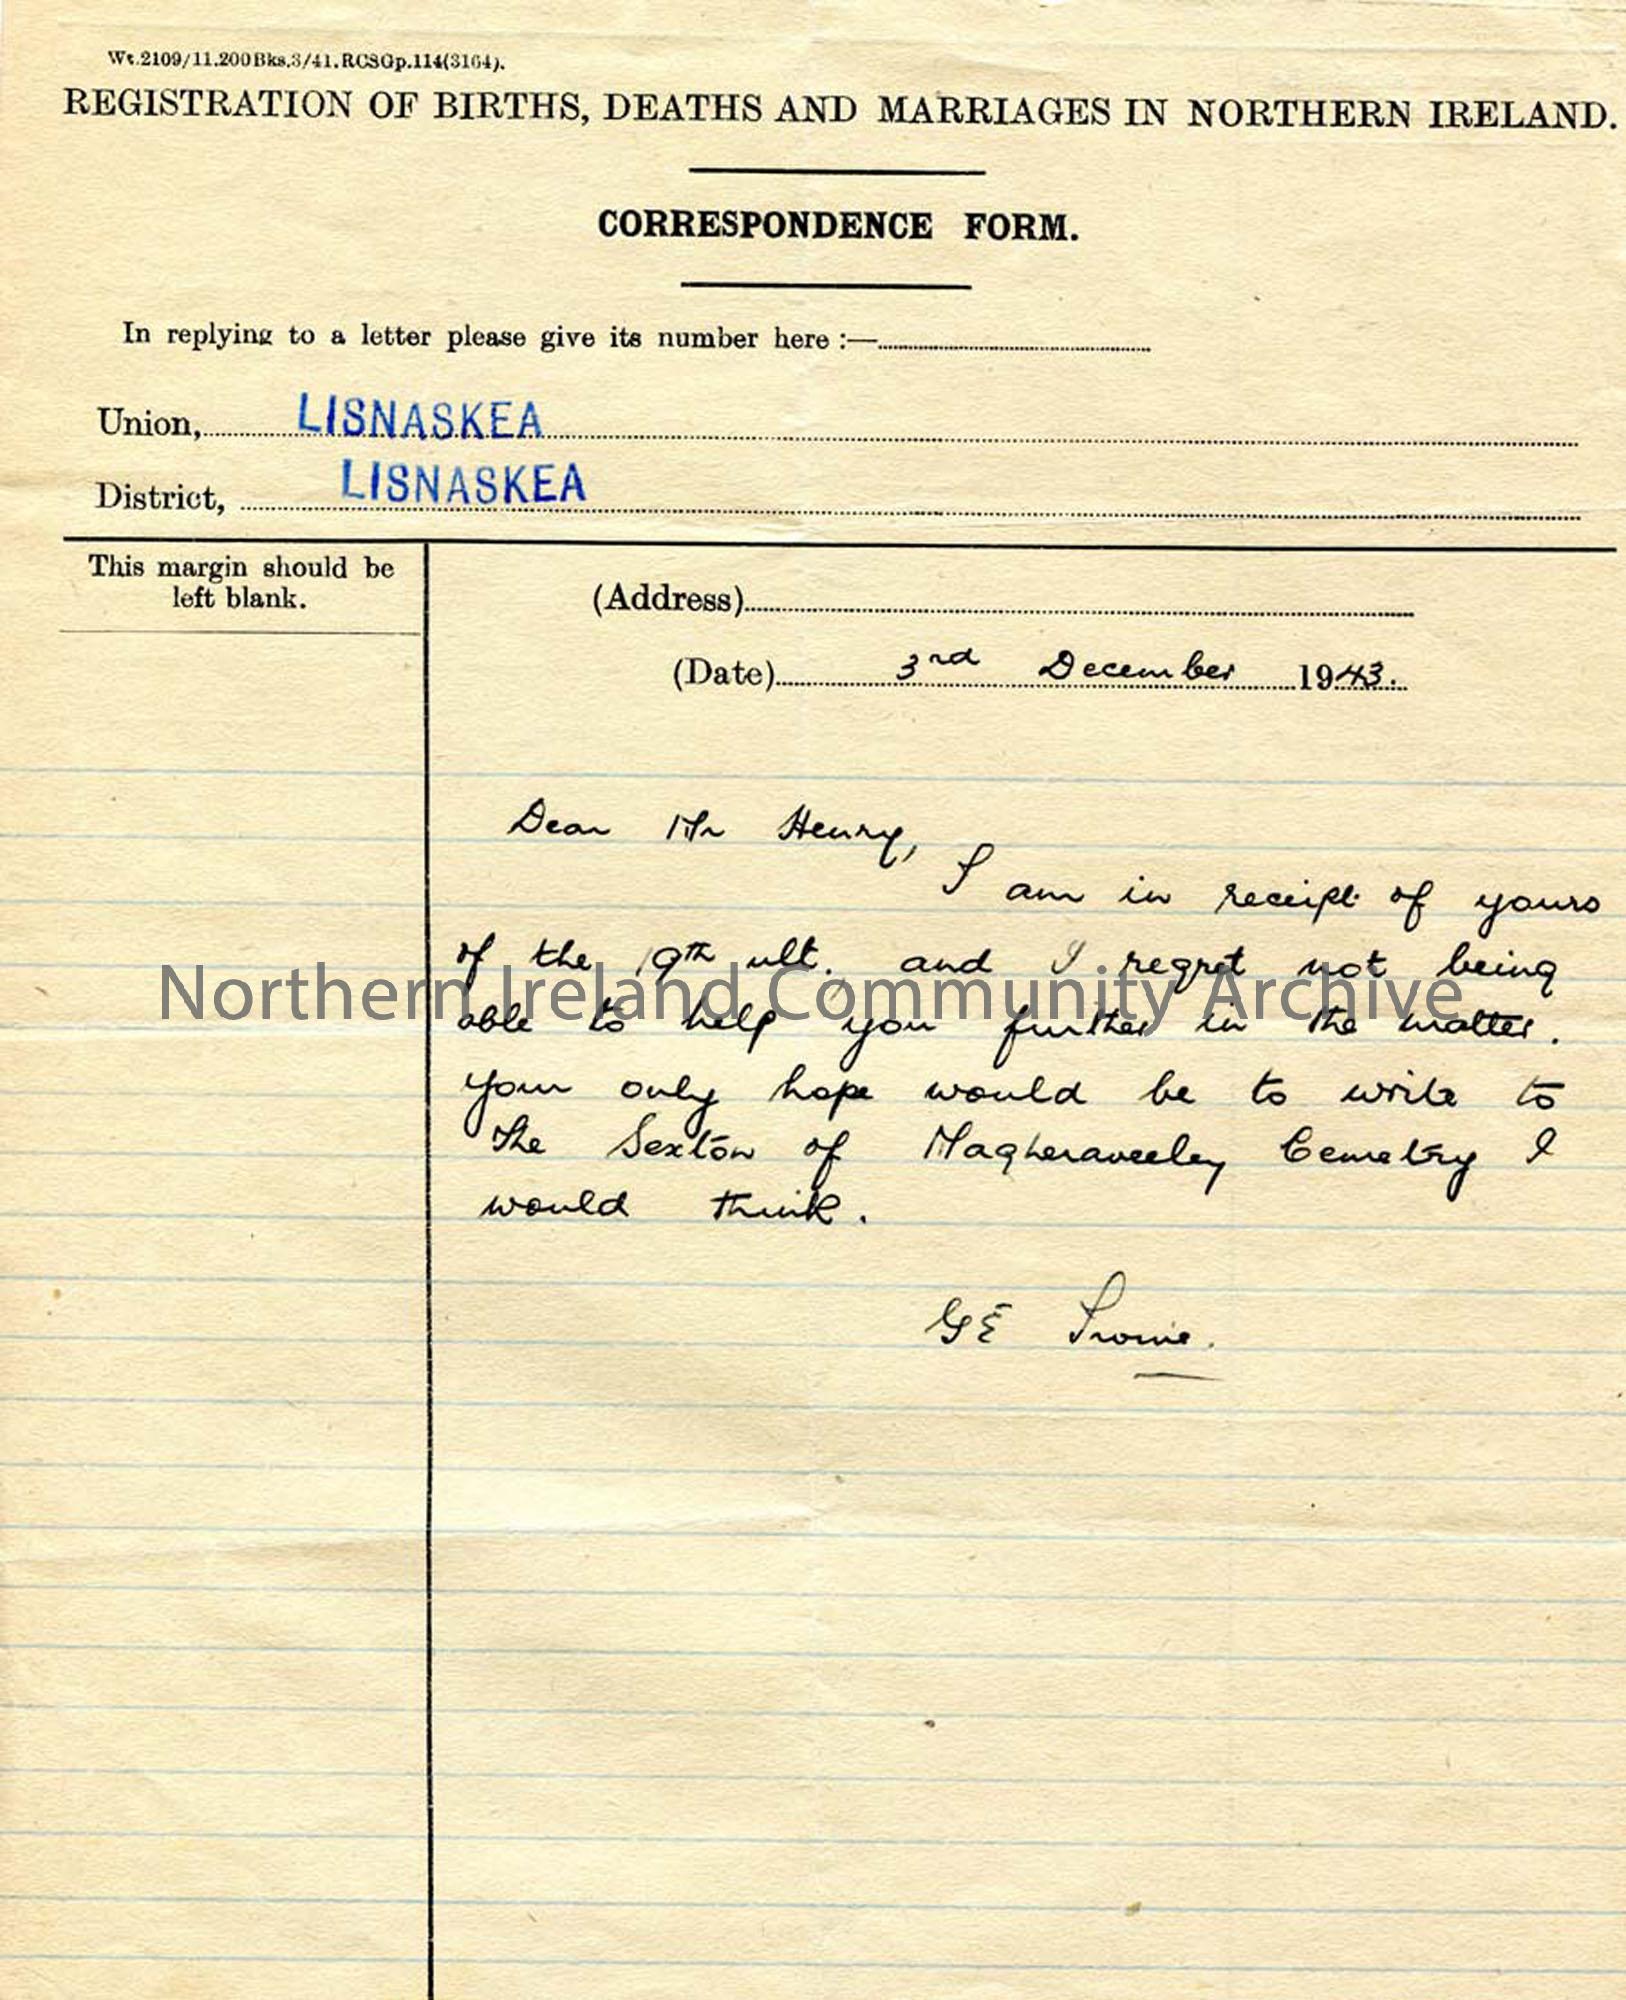 Wt.2109/11.200Bks.3/41.RCSGp.114(3164).
REGISTRATION OF BIRTHS, DEATHS AND MARRIAGES IN NORTHERN IRELAND.
CORRESPONDENCE FORM.
In replying to a letter please give its number here :—
Union, LISNASKEA
District, LISNASKEA
This margin should be
left blank.
(Address)
(Date) 3rd December 1943.
Dear Mr Henry,
I am in receipt of yours
of the 19th ult. and I regret not being
Northern Ireland Community Archive
able to help you further in the matter.
Your only hope would be to write to
the Sexton of Magheraveeley Cemetry I
would think.
GE Irvine.